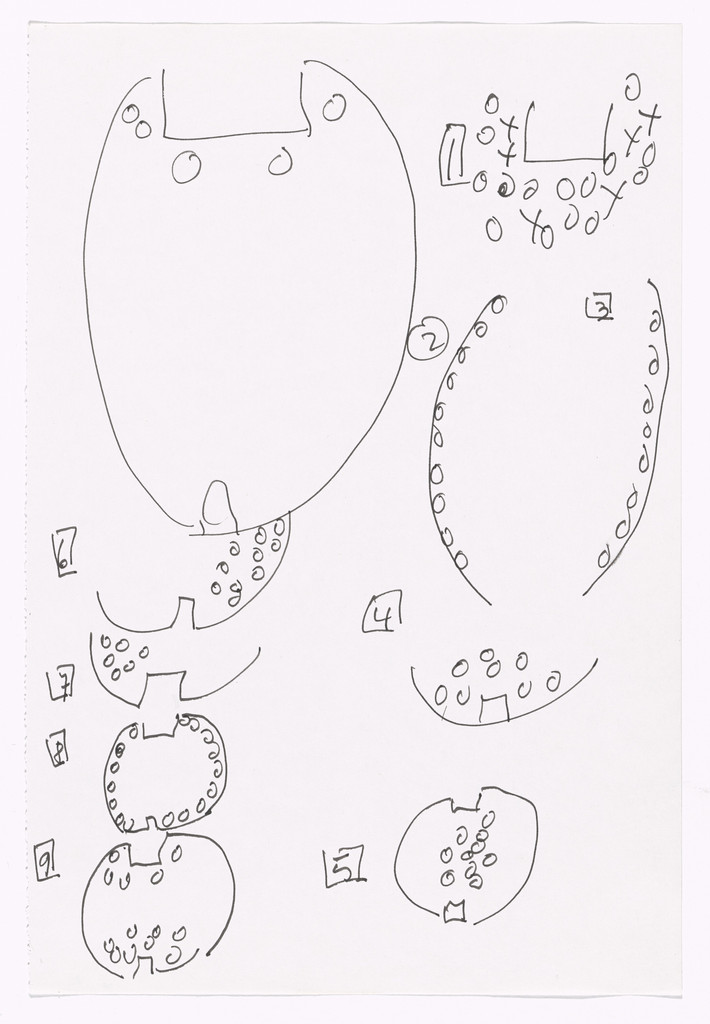 1
2
3
6
4
7
8
9
5